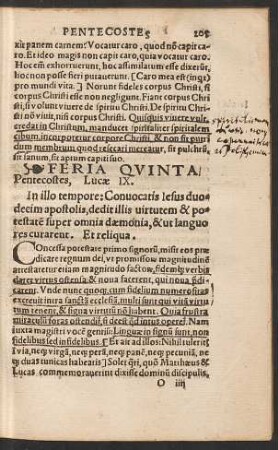 PENTECOSTES 205
xit: panem carnem? Vocatur caro, quod nō capit ca-
ro. Et ideo magis non capit caro, quia vocatur caro.
Hoc em̄ exhorruerunt, hoc assimilatum esse dixerūt,
hoc non posse fieri putauerunt. [Caro mea est (inqt)
pro mundi vita.] Norunt fideles corpus Christi, si
corpus Christi esse non negligunt. Fiant corpus Chri
sti, si volunt viuere de spiritu Christi. De spiritu Chri-
sti nō viuit, nisi corpus Christi. Quisquis viuere vult,
credat in Christum, manducet spiritaliter spiritalem
cibum, incorporetur corpori Christi, & non sit putri-
dum membrum, quod resecari mereatur, sit pulchrū,
sit sanum, sit aptum capiti suo.
FERIA QVINTA
Pentecostes, Lucæ IX.
In illo tempore: Conuocatis Iesus duo-
decim apostolis, dedit illis virtutem & po
testatē super omnia dæmonia, & vt languo
res curarent. Et reliqua.
COncessa potestate primo signorū, misit eos præ
dicare regnum dei, vt promissorū magnitudinē
attestaretur etiam magnitudo factorū, fidemq́; verbis
daret virtus ostensa, & noua facerent, qui noua p̄di-
carent. Vnde nunc quoq;, cum fidelium numerositas
excreuit, intra sanctā ecclesiā, multi sunt qui vitā virtu
tum tenent, & signa virtutū nō habent. Quia frustra
miraculū foras ostendit, si deest qd́ intus operet. Nam
iuxta magistri vocē gentiū: Linguæ in signū sunt, non
fidelibus sed infidelibus. [Et ait ad illos: Nihil tuleritis
in via, neq; virgā, neq; perā, neq; panē, neq; pecuniā, ne
q; duas tunicas habeatis] Solet q̄ri, quō Matthæus &
Lucas commemorauerint dixisse dominū discipulis,
O iiij